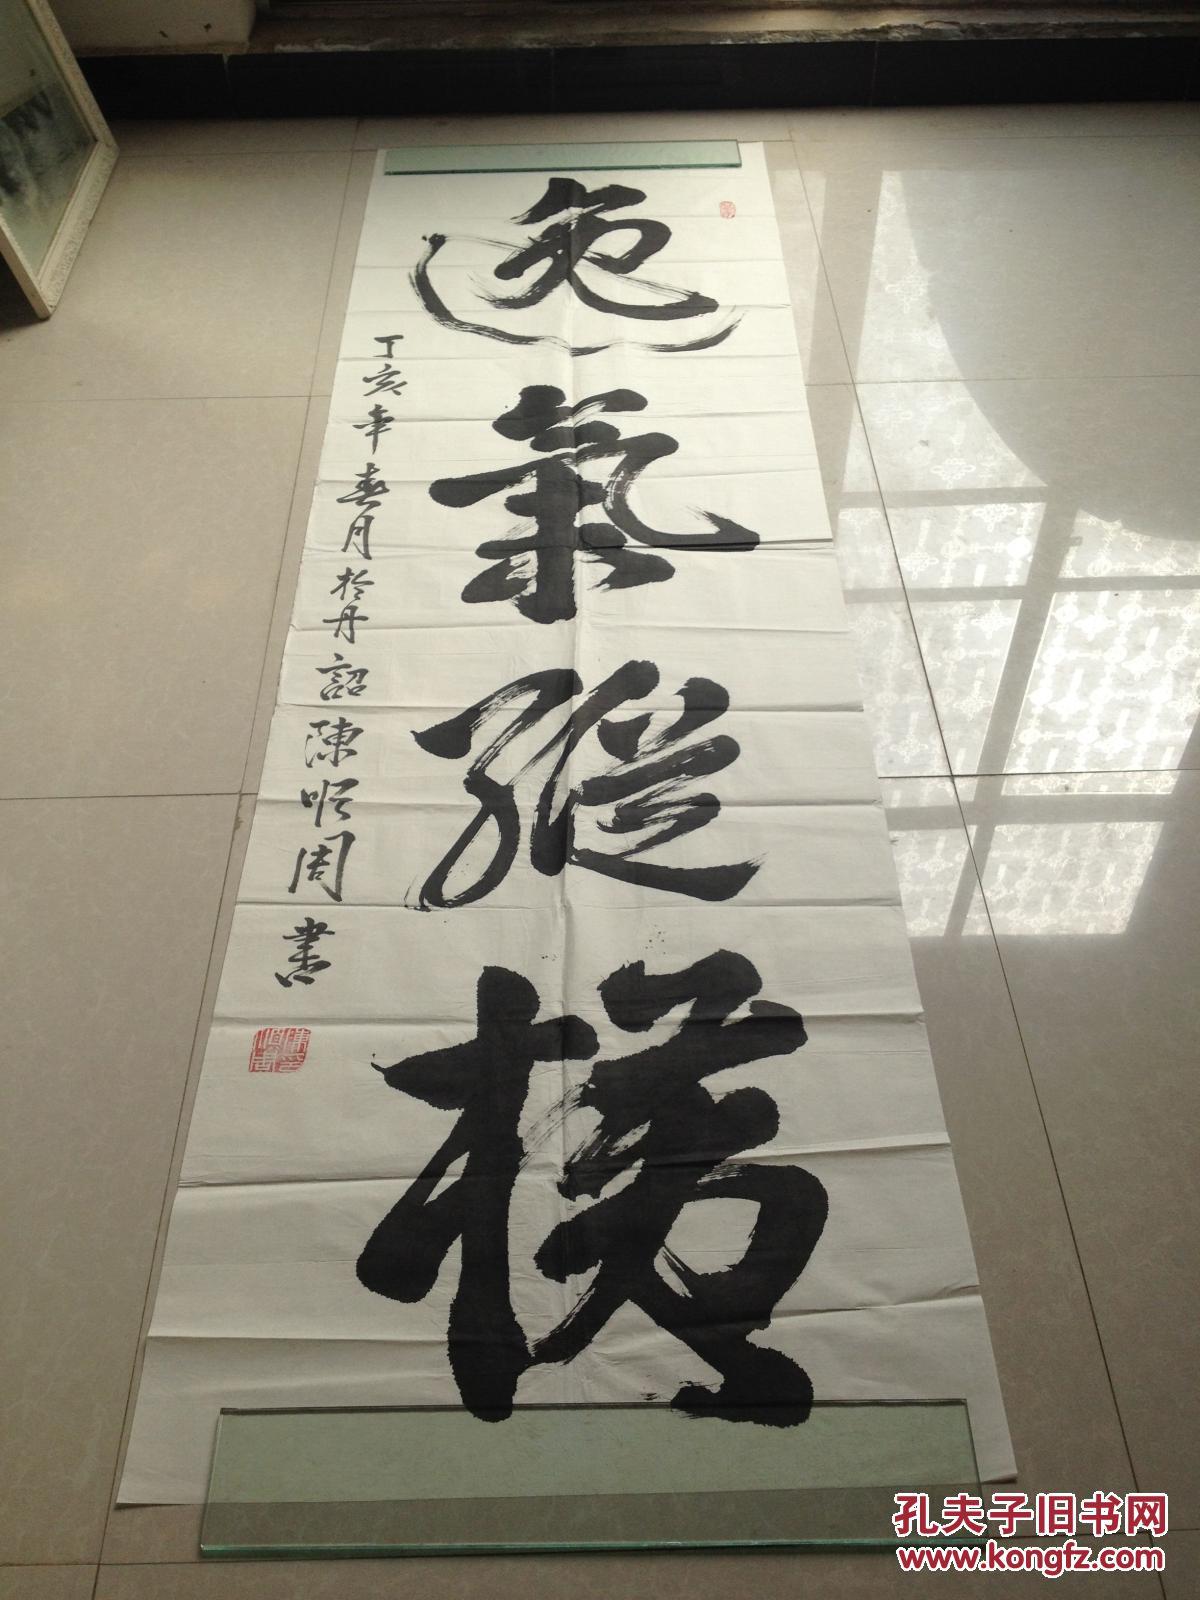 逸氣縱橫
丁亥年春月於丹詔陳順周書
孔夫子旧书网
www.kongfz.com